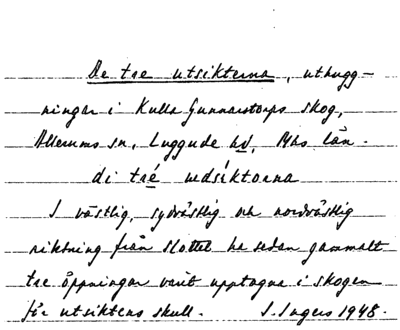 De tre utsikterna, uthugg-
ningar i Kulla Gunnarstorps skog,
Allerums sn, Luggude hd, Mhs län.
di tré udsiktorna
I västlig, sydvästlig och nordvästlig
riktning från slottet ha sedan gammalt
tre öppningar varit upptagna i skogen
för utsiktens skull. I. Ingers 1948.